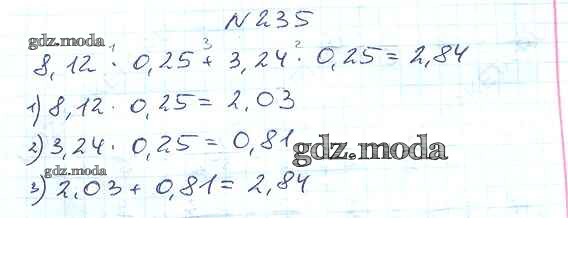 N 235
gdz.moda
1 3 2
8,12 · 0,25 + 3,24 · 0,25 = 2,84
1) 8,12 · 0,25 = 2.03
2) 3,24 · 0,25 = 0,81
gdz.moda
gdz.moda
3) 2.03 + 0,81 = 2,84